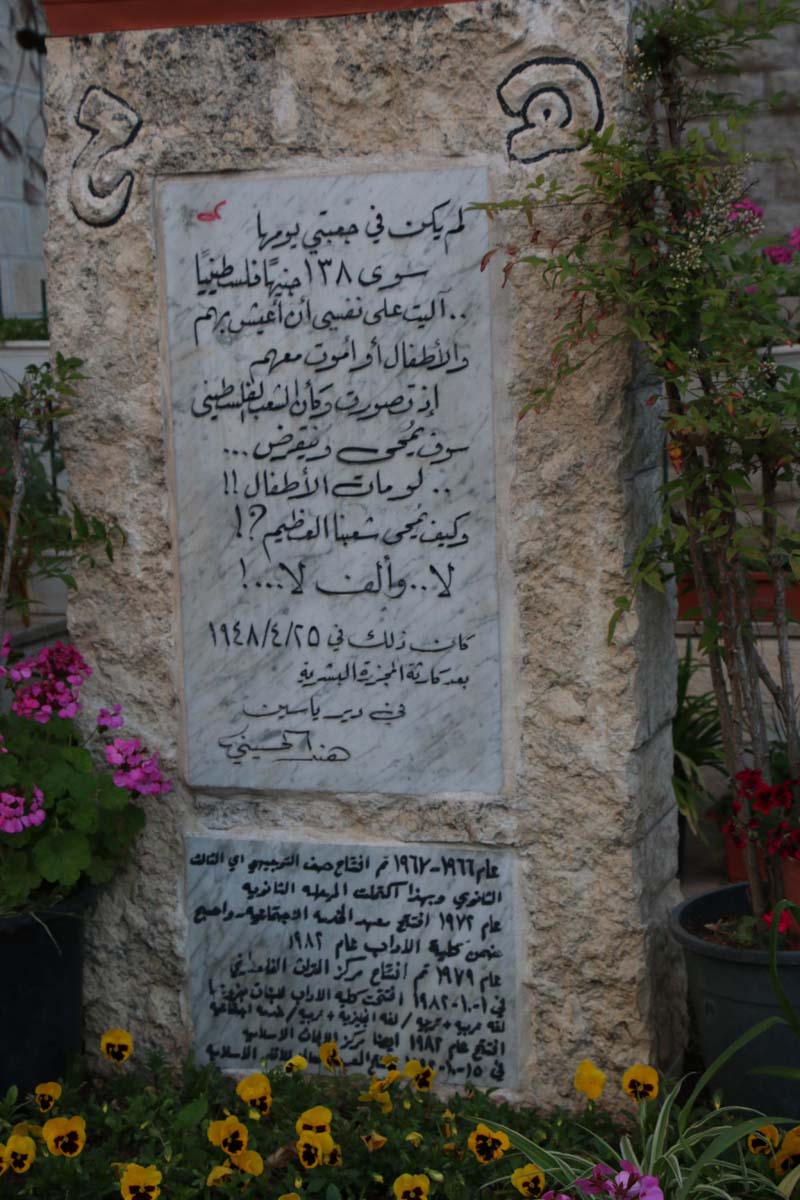 هـ ح
لم يكن في جعبتي يومها
سوى ١٣٨ جنيهًا فلسطينيًا
..آليت على نفسي أن أعيش بهم
والأطفال أو أموت معهم
إذ تصورت وكأن الشعب الفلسطيني
سوف يُمحى وينقرض...
..لو مات الأطفال!!
وكيف يُمحى شعبنا العظيم؟!
لا..وألف لا...!
كان ذلك في ١٩٤٨/٤/٢٥
بعد كارثة المجزرة البشرية
في دير ياسين
هند الحسيني
عام ١٩٦٦-١٩٦٧ تم افتتاح صف التوجيهي اي الثالث
الثانوي وبهذا اكتملت المرحله الثانويه
عام ١٩٧٢ افتتح معهد الخدمه الاجتماعيه-واصبح
ضمن كلية الاداب عام ١٩٨٢
عام ١٩٧٩ تم افتتاح مركز التراث الفلسطيني
في ١-١٠-١٩٨٢ افتتحت كلية الاداب للبنات
لغه عربيه+تربيه/لغه انجليزية+تربيه/خدمه اجتماعية
افتتح عام ١٩٨٢ ايضا مركز الابحاث الاسلاميه